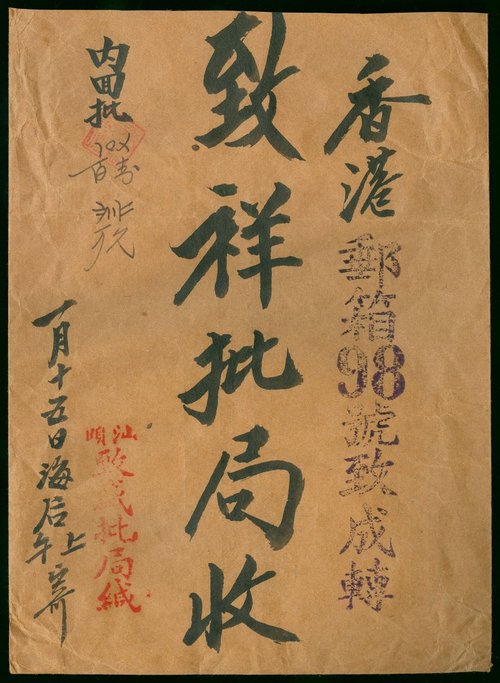 香港郵箱98號致成轉
致祥批局收
内回批
百
一月十五日海后上午
汕
致成批局緘